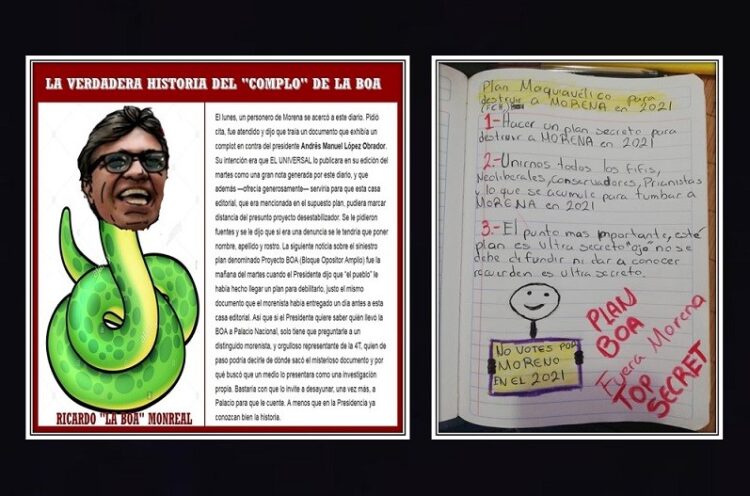 LA VERDADERA HISTORIA DEL "COMPLO" DE LA BOA
El lunes, un personero de Morena se acercó a este diario. Pidió
cita, fue atendido y dijo que traía un documento que exhibía un
complot en contra del presidente Andrés Manuel López Obrador.
Su intención era que EL UNIVERSAL lo publicara en su edición del
martes como una gran nota generada por este diario, y que
además —ofrecía generosamente— serviría para que esta casa
editorial, que era mencionada en el supuesto plan, pudiera marcar
distancia del presunto proyecto desestabilizador. Se le pidieron
fuentes y se le dijo que si era una denuncia se le tendría que poner
nombre, apellido y rostro. La siguiente noticia sobre el siniestro
plan denominado Proyecto BOA (Bloque Opositor Amplio) fue
la mañana del martes cuando el Presidente dijo que "el pueblo" le
había hecho llegar un plan para debilitarlo, justo el mismo
documento que el morenista había entregado un día antes a esta
casa editorial. Así que si el Presidente quiere saber quién llevó la
BOA a Palacio Nacional, solo tiene que preguntarle a un
distinguido morenista, y orgulloso representante de la 4T, quien de
paso podría decirle de dónde sacó el misterioso documento y por
qué buscó que un medio lo presentara como una investigación
propia. Bastaría con que lo invite a desayunar, una vez más, a
Palacio para que le cuente. A menos que en la Presidencia ya
conozcan bien la historia.
RICARDO "LA BOA" MONREAL
Plan Maquiavélico para
destruir a MORENA en 2021
(FCH)
1-Hacer un plan secreto para
destruir a MORENA en 2021
2.-Unirnos todos los fifis,
Neoliberales, conservadores, Prianistas
y lo que se acumule para tumbar a
MORENA en 2021
3.-El punto mas importante, esté
plan es ultra secreto "ojo" no se
debe difundir ni dar a conocer
recuerden es ultra secreto.
NO VOTES POR
MORENO
EN EL 2021
PLAN
BOA
Fuera Morena
TOP
SECRET